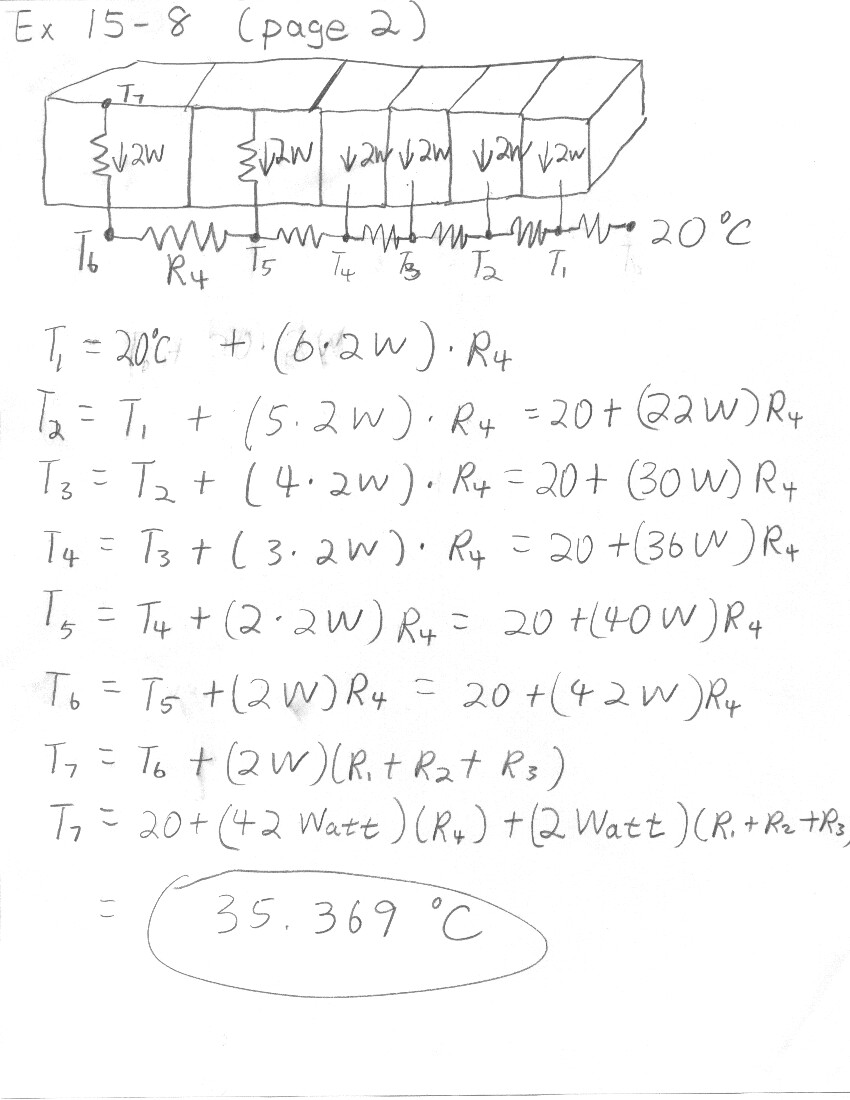 Ex 15-8 (page 2)
T7
↓2W ↓2W ↓2W ↓2W ↓2W ↓2W
T6 R4 T5 T4 T3 T2 T1 20°C
T1 = 20°C + (6·2W)·R4
T2 = T1 + (5·2W)·R4 = 20 + (22W)R4
T3 = T2 + (4·2W)·R4 = 20 + (30W)R4
T4 = T3 + (3·2W)·R4 = 20 + (36W)R4
T5 = T4 + (2·2W)R4 = 20 + (40W)R4
T6 = T5 + (2W)R4 = 20 + (42W)R4
T7 = T6 + (2W)(R1 + R2 + R3)
T7 = 20 + (42 Watt)(R4) + (2 Watt)(R1 + R2 + R3)
= 35.369 °C